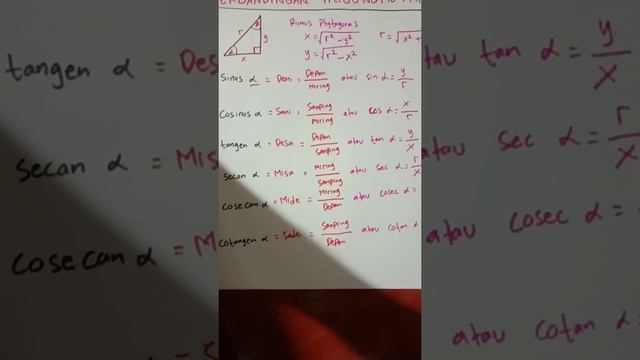 PERBANDINGAN TRIGONOMETRI
Rumus Phytagoras
x = √r² - y²
r = √x² +
y = √r² - x²
r
y
x
A
B
Sinus α = Demi = Depan/Miring atau sin α = y/r
Cosinus α = Sami = Samping/Miring atau Cos α = x/r
tangen α = Desa = Depan/Samping atau tan α = y/x
secan α = Misa = Miring/Samping atau sec α = r/x
cosecan α = Mide = Miring/Depan atau cosec α =
cotangen α = Sade = Samping/Depan atau cotan α
tangen α = Des
secan α = Mis
cosecan α = M
atau tan α = y/x
atau sec α = r/x
atau cosec α =
atau cotan α